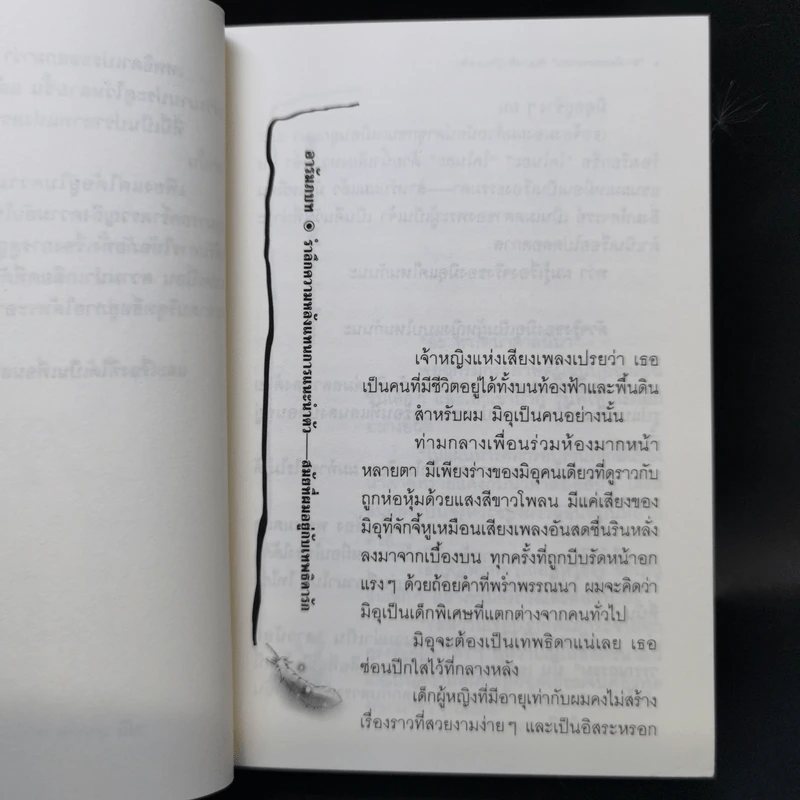 อารัมภบท ◉ รำลึกความหลังแทนการแนะนำตัว——สมัยที่ผมอยู่กับเทพธิดารัก
เจ้าหญิงแห่งเสียงเพลงเปรยว่า เธอ
เป็นคนที่มีชีวิตอยู่ได้ทั้งบนท้องฟ้าและพื้นดิน
สำหรับผม มิอุเป็นคนอย่างนั้น
ท่ามกลางเพื่อนร่วมห้องมากหน้า
หลายตา มีเพียงร่างของมิอุคนเดียวที่ดูราวกับ
ถูกห่อหุ้มด้วยแสงสีขาวโพลน มีแค่เสียงของ
มิอุที่จักจี้หูเหมือนเสียงเพลงอันสดชื่นรินหลั่ง
ลงมาจากเบื้องบน ทุกครั้งที่ถูกบีบรัดหน้าอก
แรงๆ ด้วยถ้อยคำที่พร่ำพรรณนา ผมจะคิดว่า
มิอุเป็นเด็กพิเศษที่แตกต่างจากคนทั่วไป
มิอุจะต้องเป็นเทพธิดาแน่เลย เธอ
ซ่อนปีกใสไว้ที่กลางหลัง
เด็กผู้หญิงที่มีอายุเท่ากับผมคงไม่สร้าง
เรื่องราวที่สวยงามง่ายๆ และเป็นอิสระหรอก